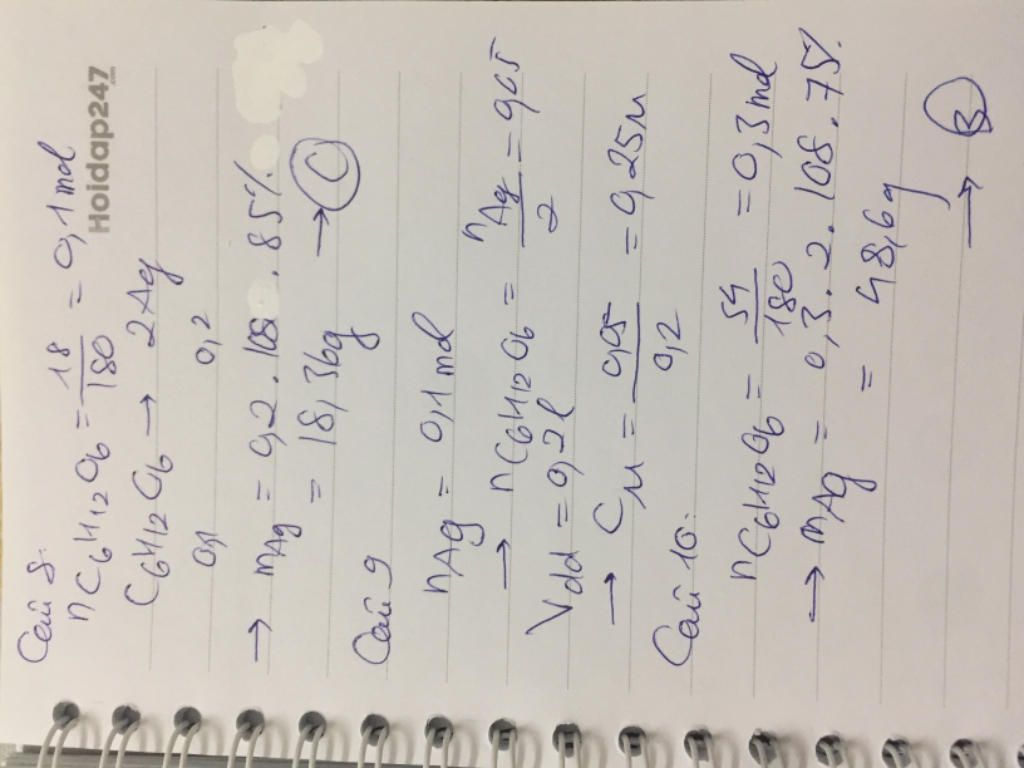 Câu 8.
nC6H12O6 = 18/180 = 0,1 mol
Hoidap247
.com
C6H12O6 → 2 Ag
0,1 0,2
→ mAg = 0,2 . 108 . 85%
= 18,36g → C
Câu 9
nAg = 0,1 mol
→ nC6H12O6 = nAg/2 = 0,05
Vdd = 0,2 l
→ CM = 0,05/0,2 = 0,25M
Câu 10.
nC6H12O6 = 54/180 = 0,3 mol
→ mAg = 0,3 . 2 . 108 . 75%.
= 48,6g
→ B